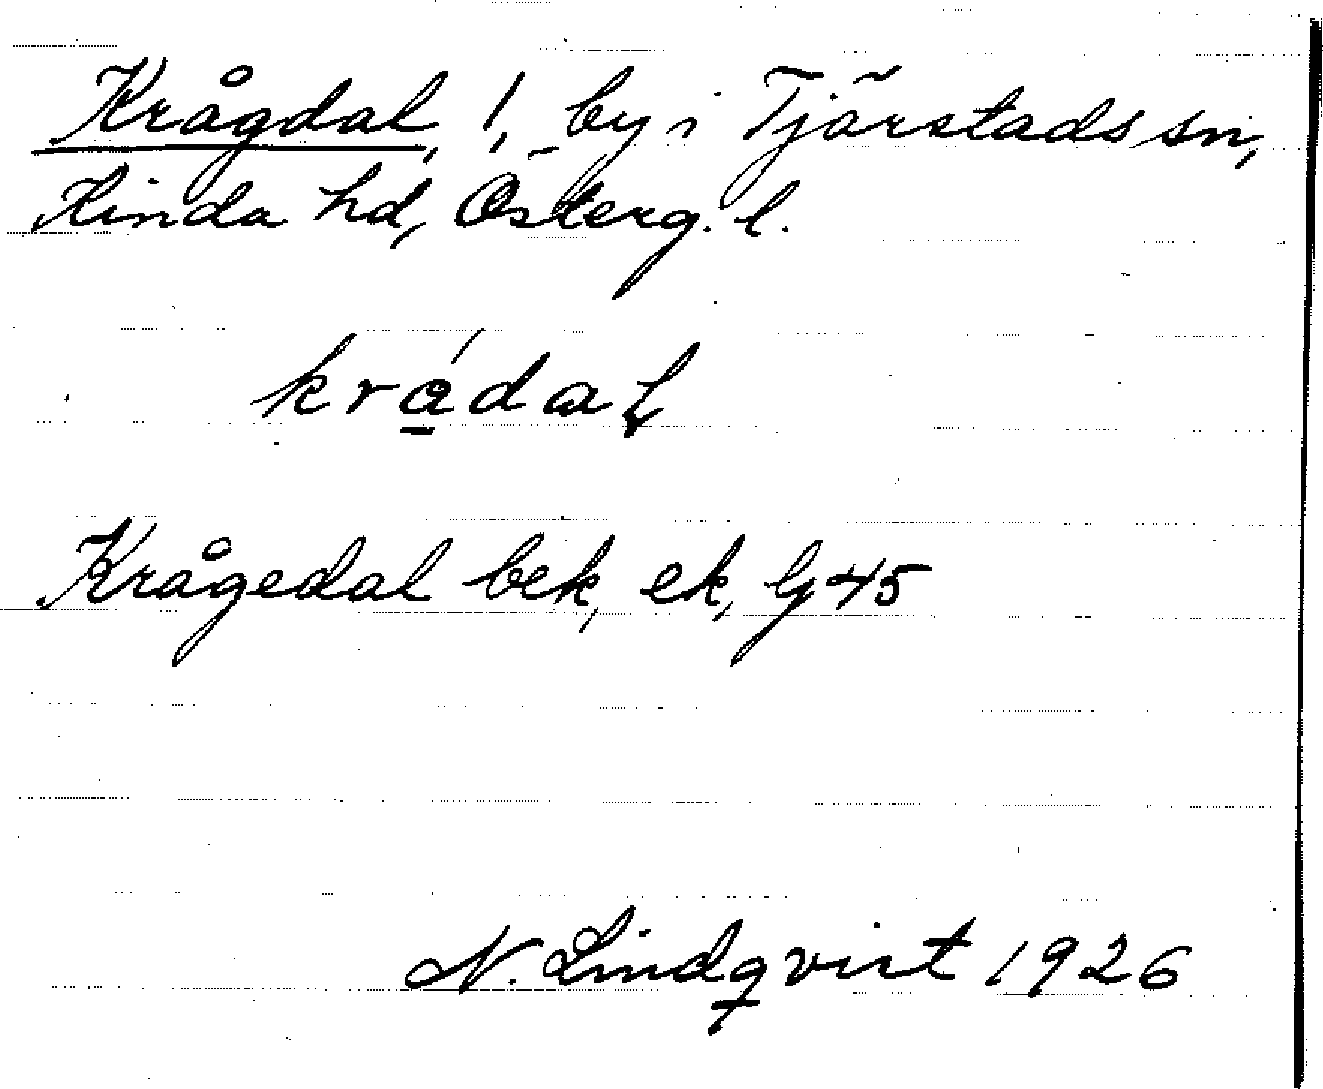 Krågdal, 1, by i Tjärstads sn,
Kinda hd, Österg. l.
krá̱daƪ
Krågedal bek, ek, G 45
N. Lindqvist 1926